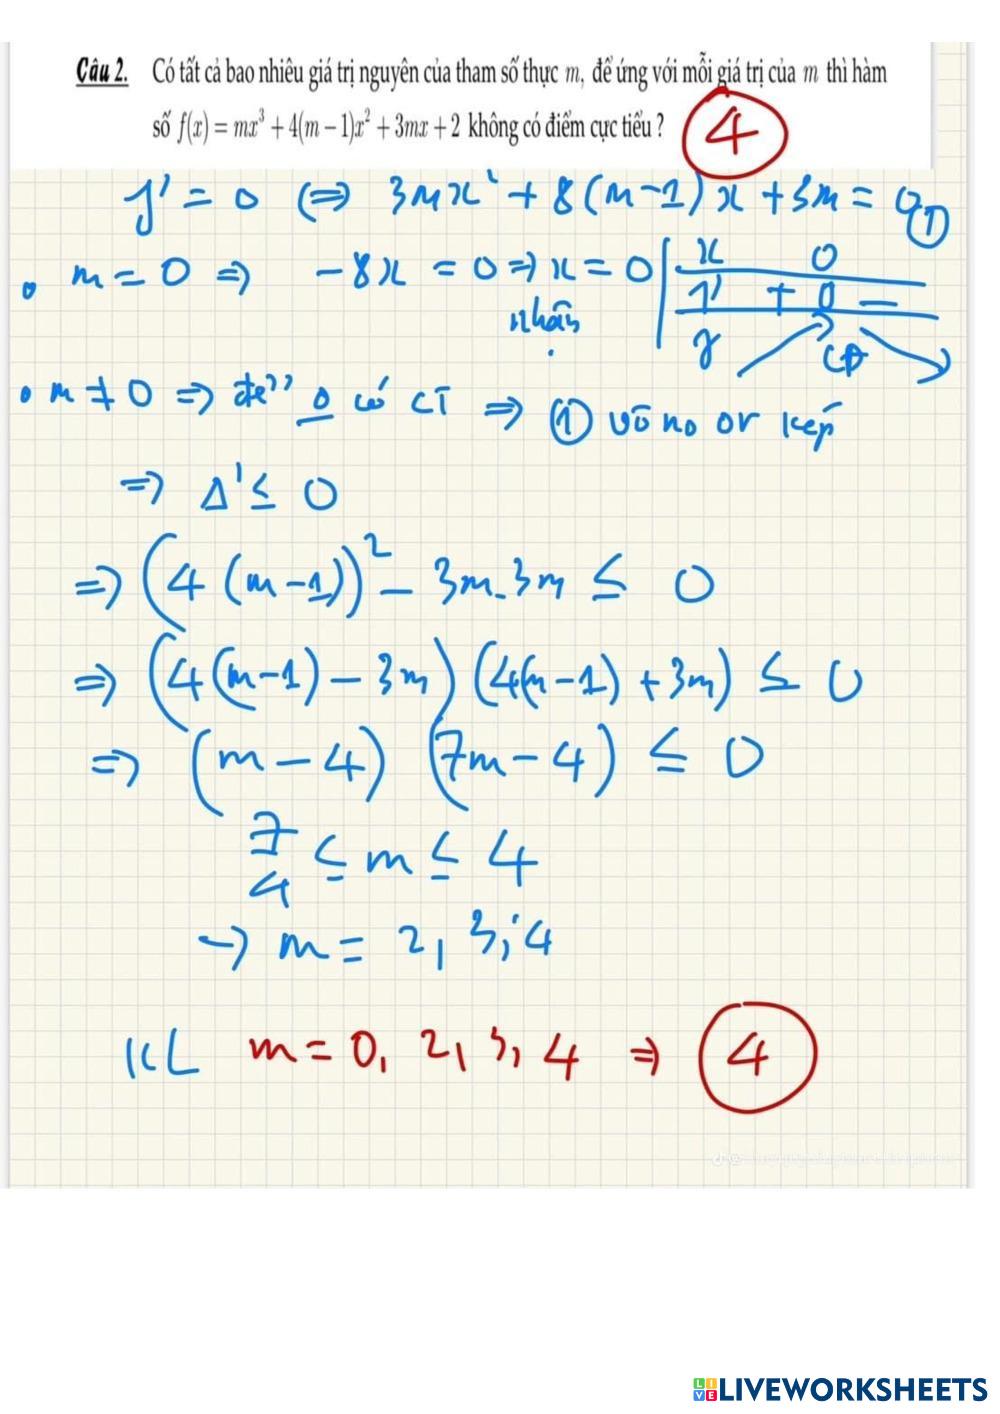 Câu 2. Có tất cả bao nhiêu giá trị nguyên của tham số thực m, để ứng với mỗi giá trị của m thì hàm
số f(x) = mx³ + 4(m − 1)x² + 3mx + 2 không có điểm cực tiểu ? 4
y' = 0 (=) 3mx² + 8(m−1)x + 3m = 0 ①
• m = 0 => −8x = 0 => x = 0
nhận
x 0
y' + 0 −
y CĐ
• m ≠ 0 => để 0 có CT => ① vô no or kép
=> Δ' ≤ 0
=> (4(m−1))² − 3m.3m ≤ 0
=> (4(m−1) − 3m) (4(m−1) + 3m) ≤ 0
=> (m − 4) (7m − 4) ≤ 0
7/4 ≤ m ≤ 4
→ m = 2, 3; 4
KL m = 0, 2, 3, 4 => 4
LIVEWORKSHEETS